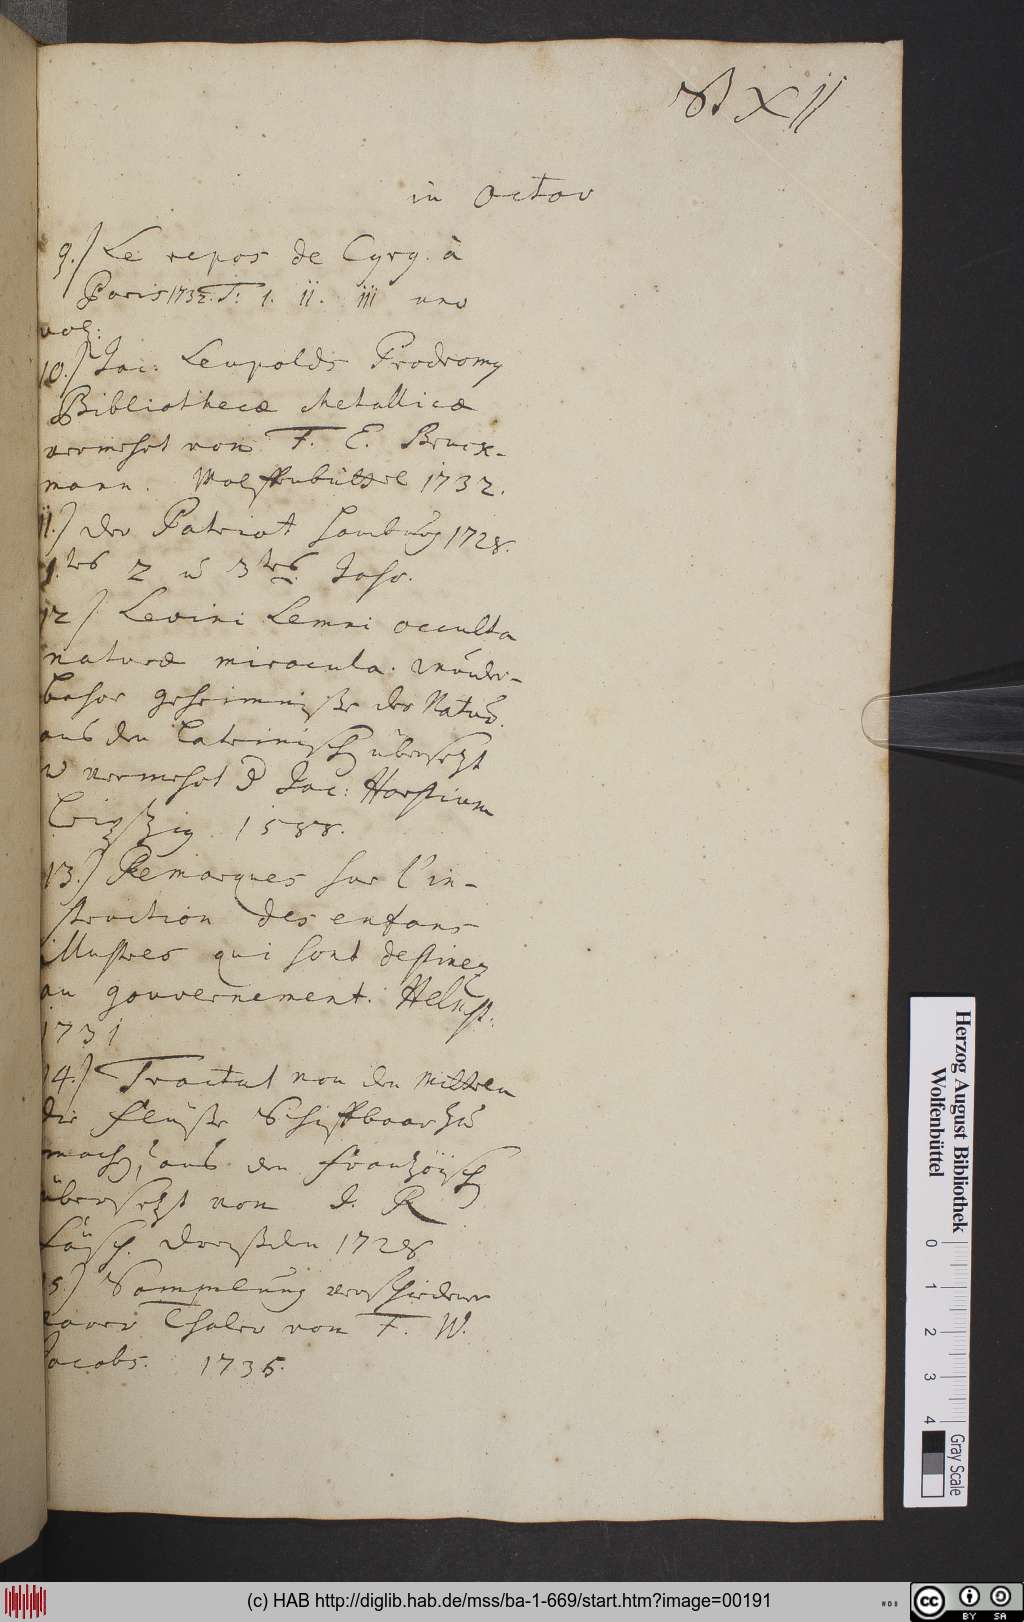 B XII
in Octav
9.) Le repos de Cyrg. à
Paris 1732. T. 1. II. III und
vol:
10.) Jac: Leupolds Prodromg
Bibliothecæ Metallicæ
vermehrt von F. E. Bruck-
mann. Wolffenbüttel 1732.
11.) der Patriot Hamburg 1728.
1.tes 2 u 3tes Jahr.
12) Levini Lemni occulta
naturæ miracula. Wunder-
bahre geheimniße der Natur.
aus den Lateinisch übersetzt
u vermehrt d Jac: Horstium
Leipzig 1588.
13.) Remarques sur l'in-
struction des enfans
illustres qui sont destinez
au gouvernement. Helmst.
1731
14.) Tractat von den Mitteln
die Flüße Schiffbaar zu
mach, aus den Französisch
übersetzt von J. R
Fäsch. Dreßden 1728
15.) Sammlung verschiedener
rarer Thaler von F. W.
Jacobs. 1735.
Herzog August Bibliothek
Wolfenbüttel
0 1 2 3 4
Gray Scale
(c) HAB http://diglib.hab.de/mss/ba-1-669/start.htm?image=00191
cc BY SA